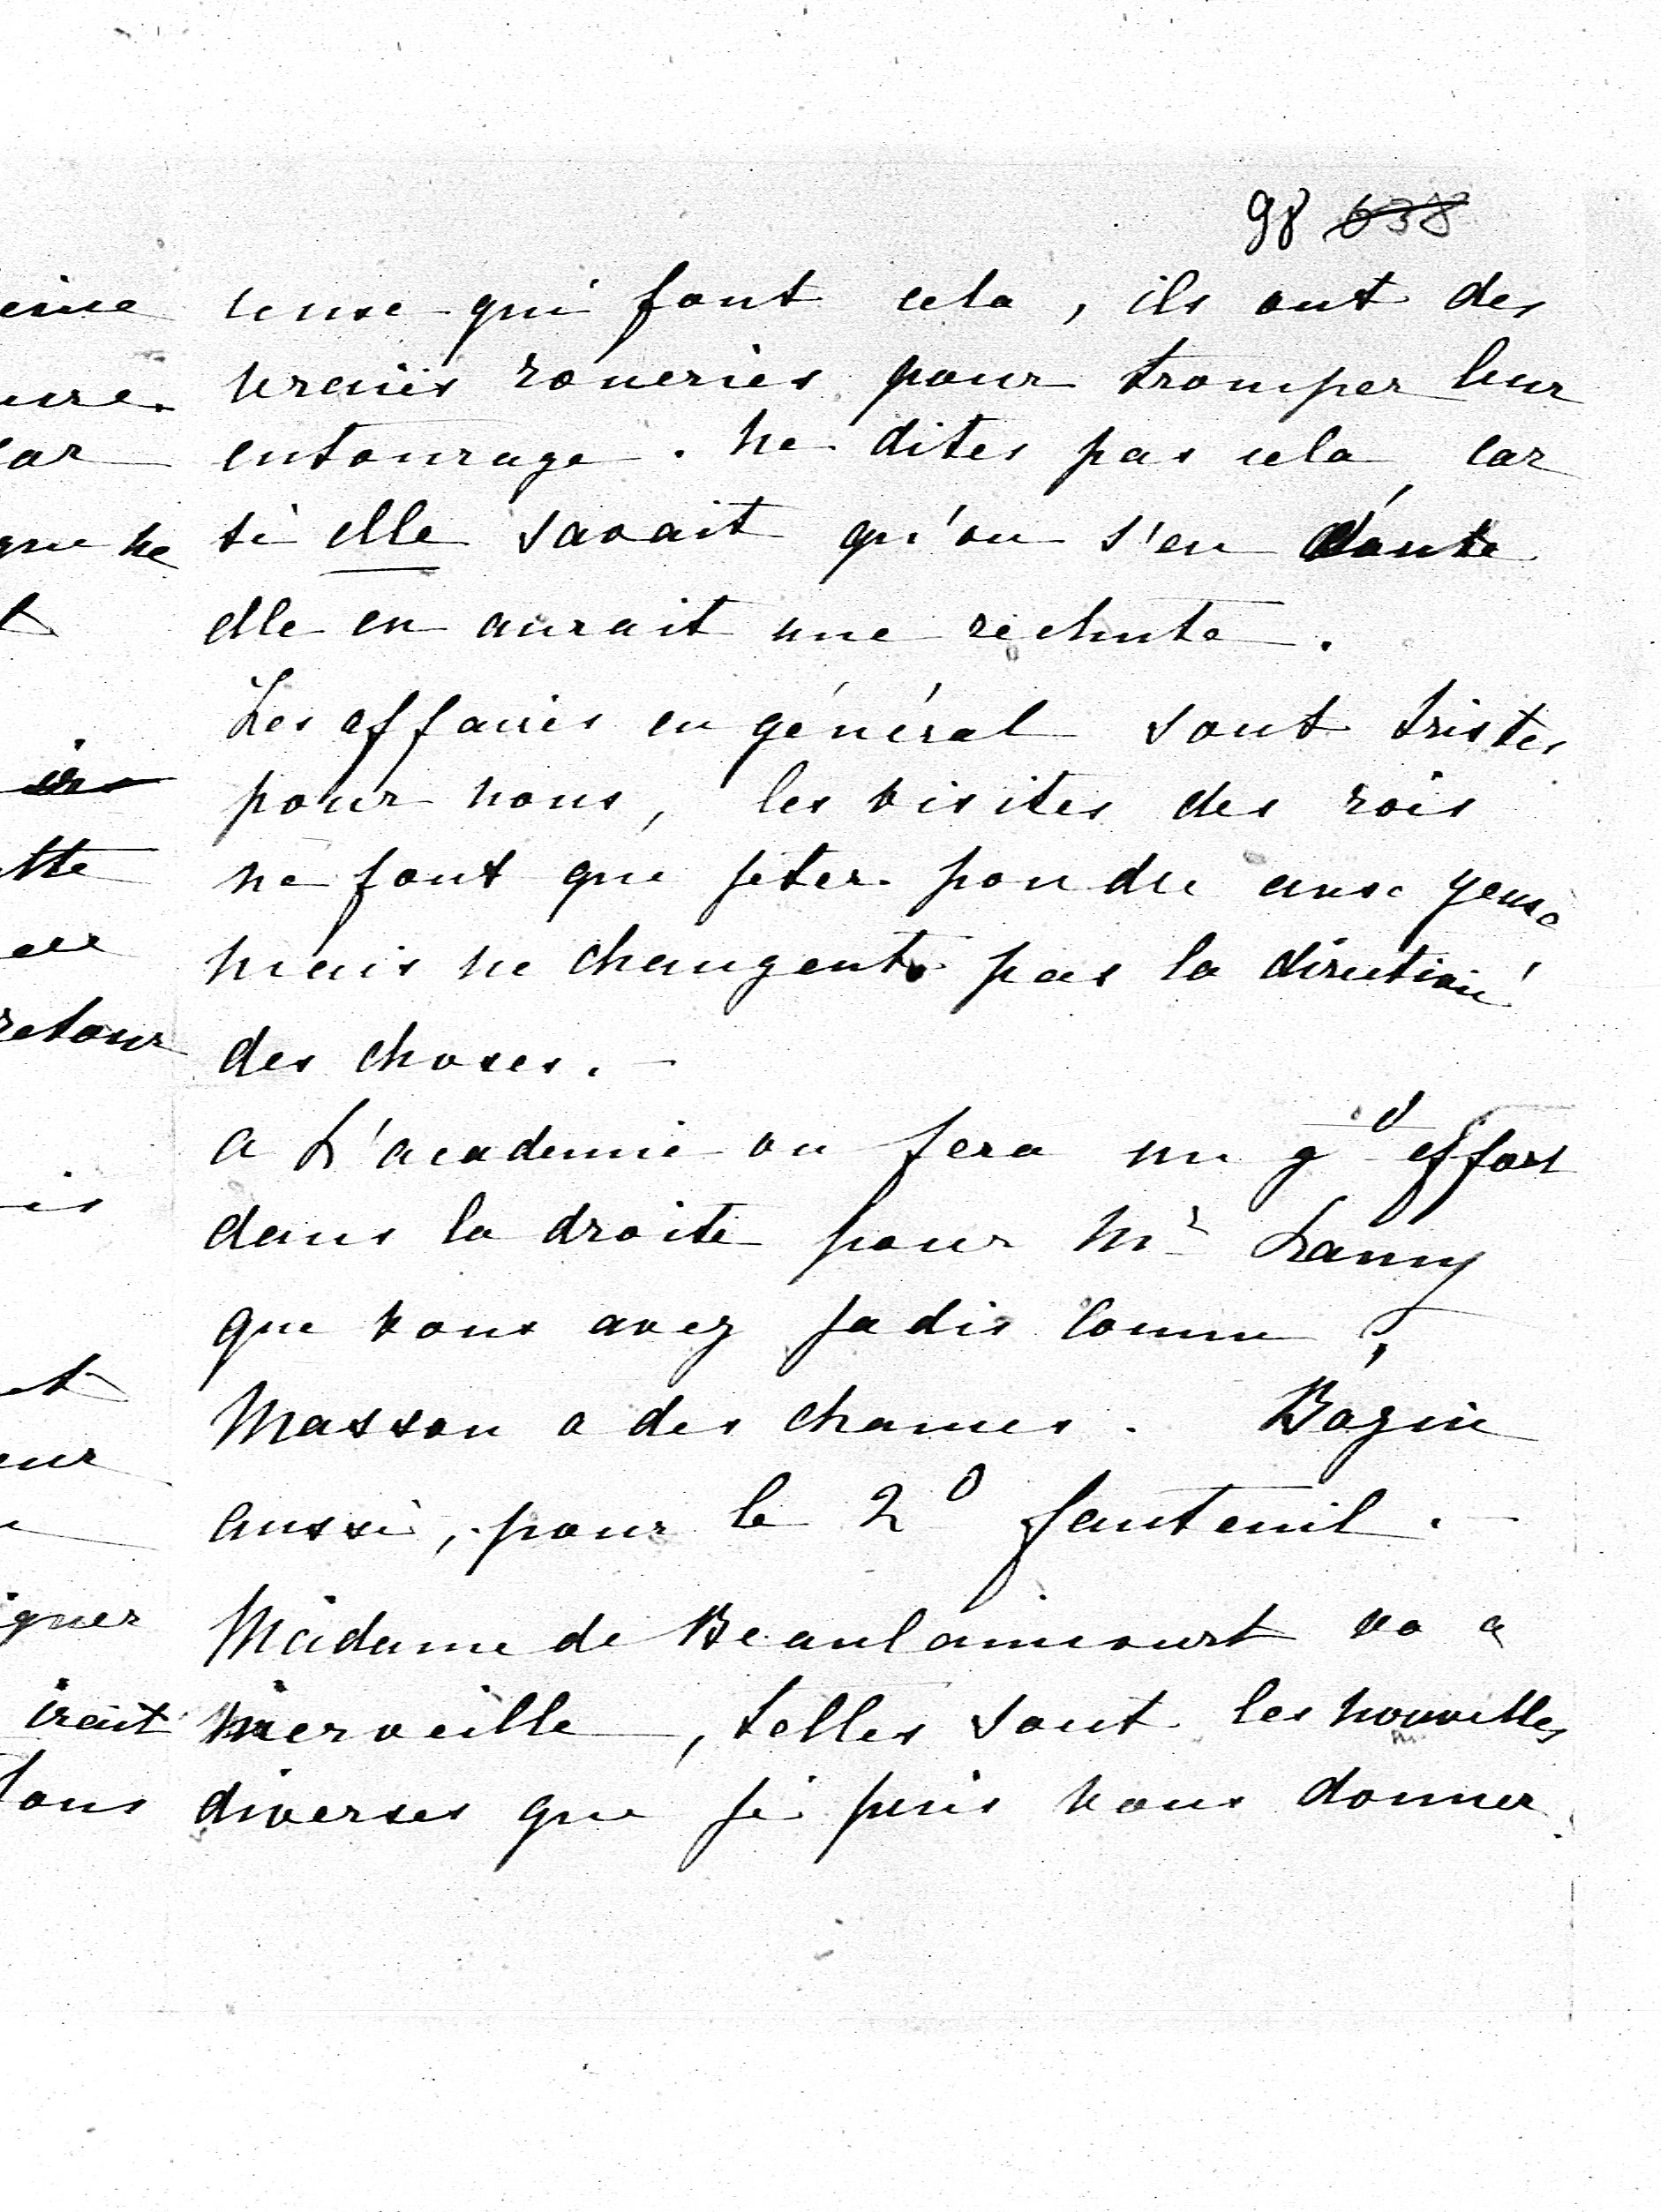 98 638
ceux qui font cela, ils ont des
vraies roueries pour tromper leur
entourage. ne dites pas cela, car
si elle savait qu'on s'en doute
elle en aurait une rechute.
Les affaires en général sont tristes
pour nous, les visites des rois
ne font que jeter poudre aux yeux
mais ne changent pas la direction
des choses. -
a L'academie on fera un gd effort
dans la droite pour Mr Lamy
que vous avez jadis connu ;
Masson a des chances. Bazin
aussi, pour le 2e fauteuil. -
Madame de Beaulaincourt va a
merveille, telles sont les nouvelles
diverses que je puis vous donner.